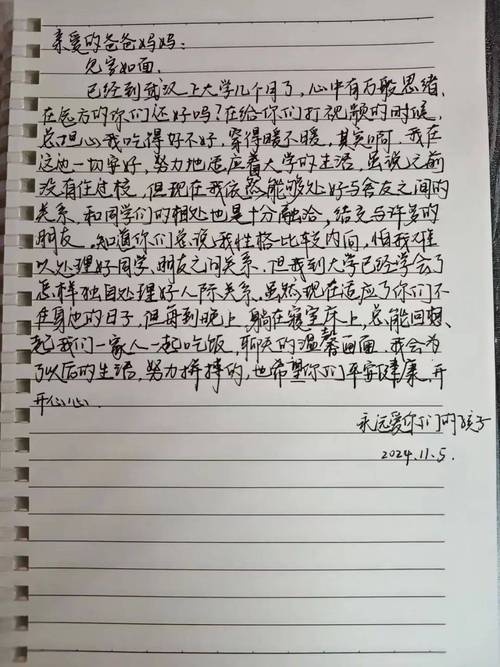 亲爱的爸爸妈妈：
见字如面。
已经到武汉上大学几个月了，心中有万般思绪，
在远方的你们还好吗？在给你们打视频的时候，
总担心我吃得好不好，穿得暖不暖，其实啊，我在
这边一切安好，努力地适应着大学的生活，虽说之前
没有住过校，但现在我依然能够处好与舍友之间的
关系，和同学们的相处也是十分融洽，结交与许多的
朋友，知道你们总说我性格比较内向，怕我难
以处理好同学、朋友之间关系，但我到大学已经学会了
怎样独自处理好人际关系。虽然现在适应了你们不
在身边的日子，但每到晚上，躺在寝室床上，总能回想
起我们一家人一起吃饭，聊天的温馨画面，我会为
了以后的生活，努力拼搏的，也希望你们平安健康，开
开心心。
永远爱你们的孩子
2024.11.5.